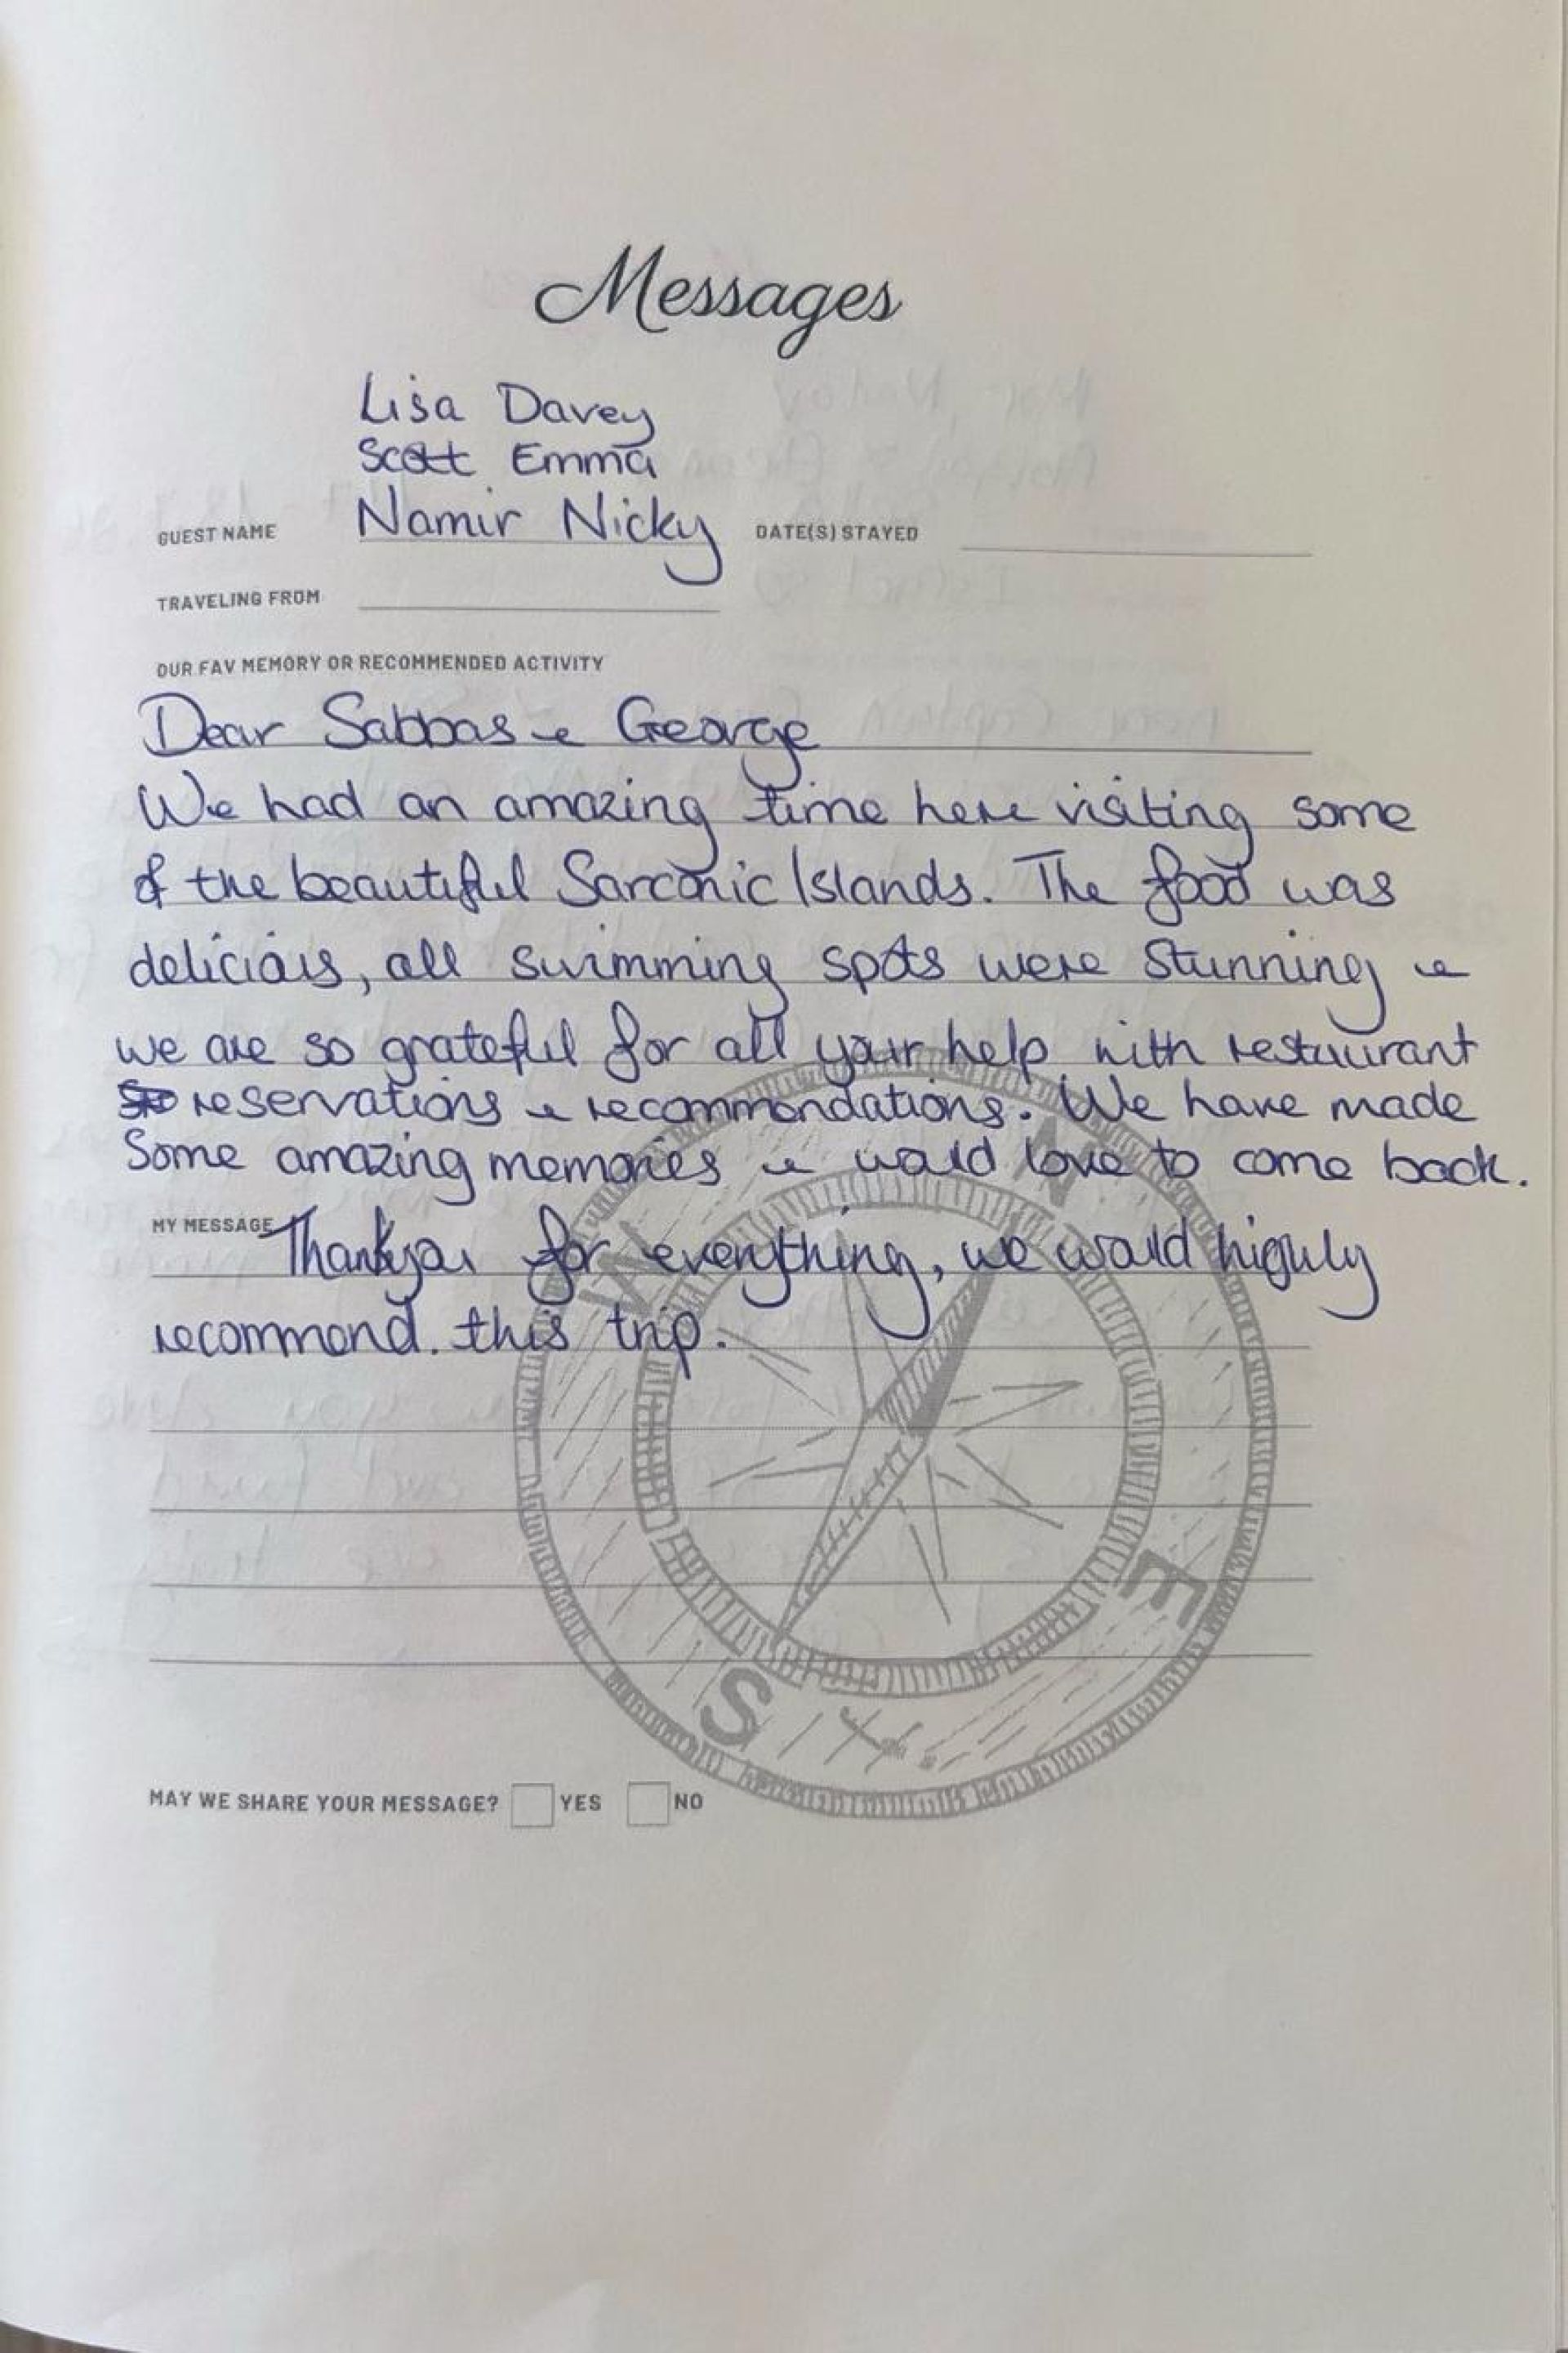 Messages
Lisa Davey
Scott Emma
GUEST NAME Namir Nicky DATE(S) STAYED
TRAVELING FROM
OUR FAV MEMORY OR RECOMMENDED ACTIVITY
Dear Sabbas & George
We had an amazing time here visiting some
of the beautiful Sarconic Islands. The food was
delicious, all swimming spots were stunning &
we are so grateful for all your help with restaurant
reservations & recommendations. We have made
Some amazing memories & would love to come back.
MY MESSAGE Thankyou for everything, we would highly
recommend. this trip.
N
W
E
S
MAY WE SHARE YOUR MESSAGE? YES NO